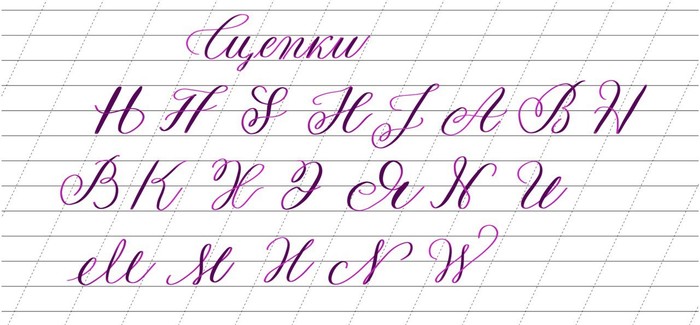 Сцепки
H H S H J A B H
B K H Я N U
M M H N W